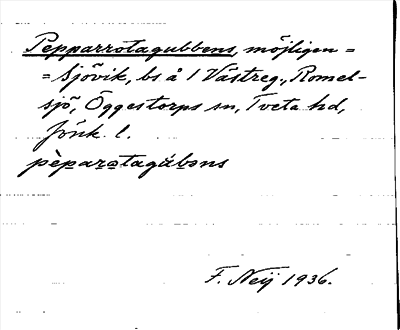 Pepparrotagubbens, möjligen =
= Sjövik, bs å 1 Västreg., Romel-
sjö, Öggestorps sn, Tveta hd,
Jönk. l.
pèpar̲o̲tagúbəns
F. Neij 1936.